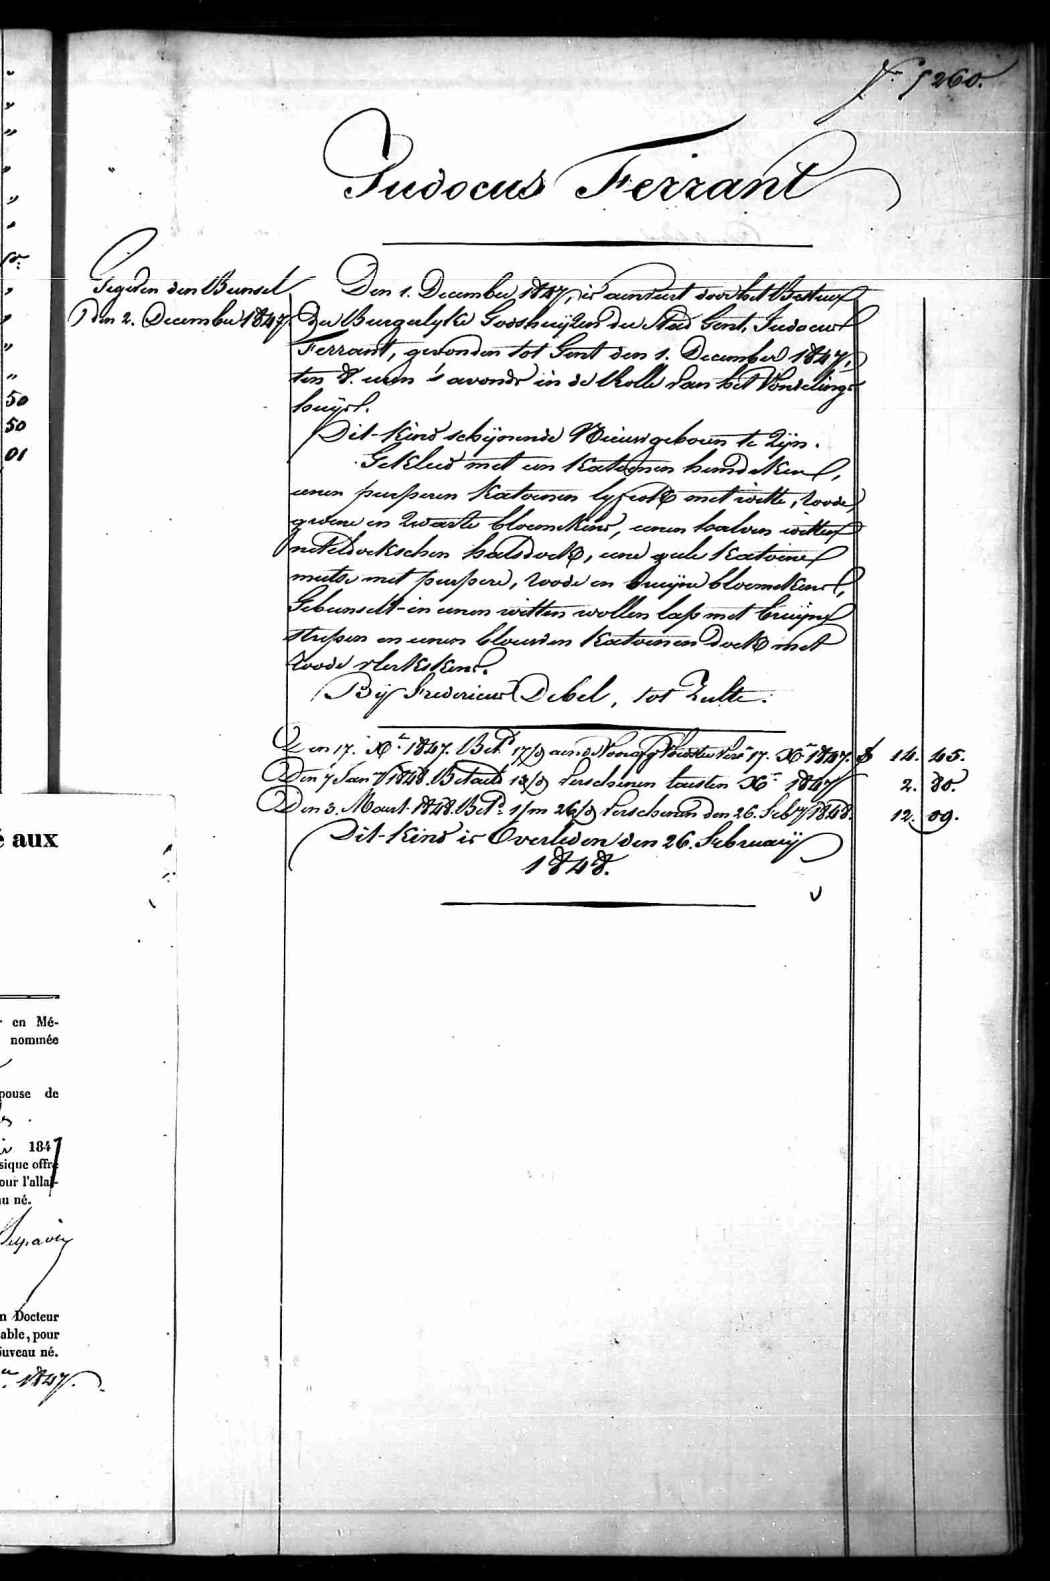 260.
Judocus Ferrant
Gegeven den Bunsel
den 2. December 1847
Den 1. December 1847, is aenveert door het Bestuer
der Burgerlyke Godshuijzen der Stad Gent, Judocus
Ferrant, gevonden tot Gent den 1. December 1847,
ten 8. uren 's avonds in de Rolle van het Vondeling-
huijs.
Dit Kind schijnende Nieuwgeboren te Zijn.
Gekleed met een Katoenen hemdeken,
eenen purperen Katoenen lyfrok met witte, roode
groene en Zwarte bloemekens, eenen halven witten
neteldoekschen halsdoek, eene geele Katoene
mutse met purpere, roode en bruijne bloemekens,
Gebunselt in eenen witten wollen lap met bruijne
strepen en eenen blauwen Katoenen doek met
roode vlekskens.
Bij Fredericus Debel, tot Zulte.
Den 17. Xr 1847. Bet. 17/d aen 17. Xr 1847. 14. 45.
Den 7 Jany 1848. Betaelt 13/d verschenen laesten Xr 1847 2. 80.
Den 3. Maart 1848. Bet. 1/m 26/d verschenen den 26. Feby 1848. 12. 09.
Dit Kind is Overleden den 26. February
1848.
50
50
01
é aux
en Mé-
nommée
pouse de
1847
sique offre
our l'allai-
au né.
n Docteur
able, pour
ouveau né.
1847.